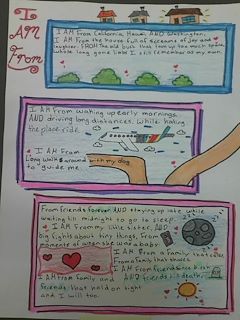 I AM From
I AM From California Hawaii AND Washington,
I AM From the house full of screams of joy and
laughter. FROM The old bush that took up too much space,
whose long gone limbs I still remember as my own.
I AM From waking up early mornings
AND driving long distances. While hating
the plane ride.
I AM From
Long walks around with my dog
to guide me.
From friends forever AND staying up late while
waiting till midnight to go to sleep.
I AM From my little sister, AND
big fights about tiny things, From
moments of when she was a baby.
I AM From a family that's
From a family that shares
I AM From friends since birth
AND friends till death,
I AM from Family and
friends that hold on tight
and I will too.